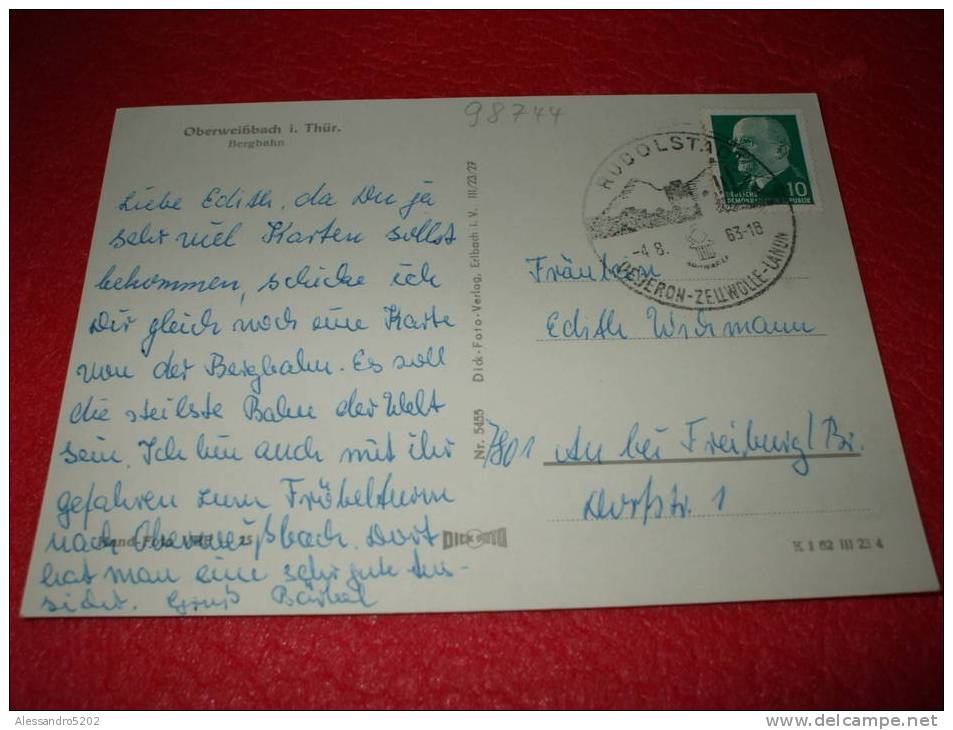 98744
Oberweißbach i. Thür.
Bergbahn
Liebe Edith, da Du ja
sehr viel Karten sollst
bekommen, schicke ich
Dir gleich noch eine Karte
von der Bergbahn. Es soll
die steilste Bahn der Welt
sein. Ich bin auch mit ihr
gefahren zum Fröbelturm
nach Oberweißbach. Dort
hat man eine sehr gute Aus-
sicht. Gruß Bärbel
Hand-Foto
Nr. 5455 Dick-Foto-Verlag, Erlbach i. V. III/23/27
DICK FOTO
RUDOLST
-4.8. 63-18
DEDERON-ZELLWOLLE-LANON
DEUTSCHE
DEMOKRATISCHE REPUBLIK
10
Fräulein
Edith Wichmann
7801 Au bei Freiburg/Br.
Dorfstr. 1
K 1 62 III 23 4
Alessandro5202
www.delcampe.net